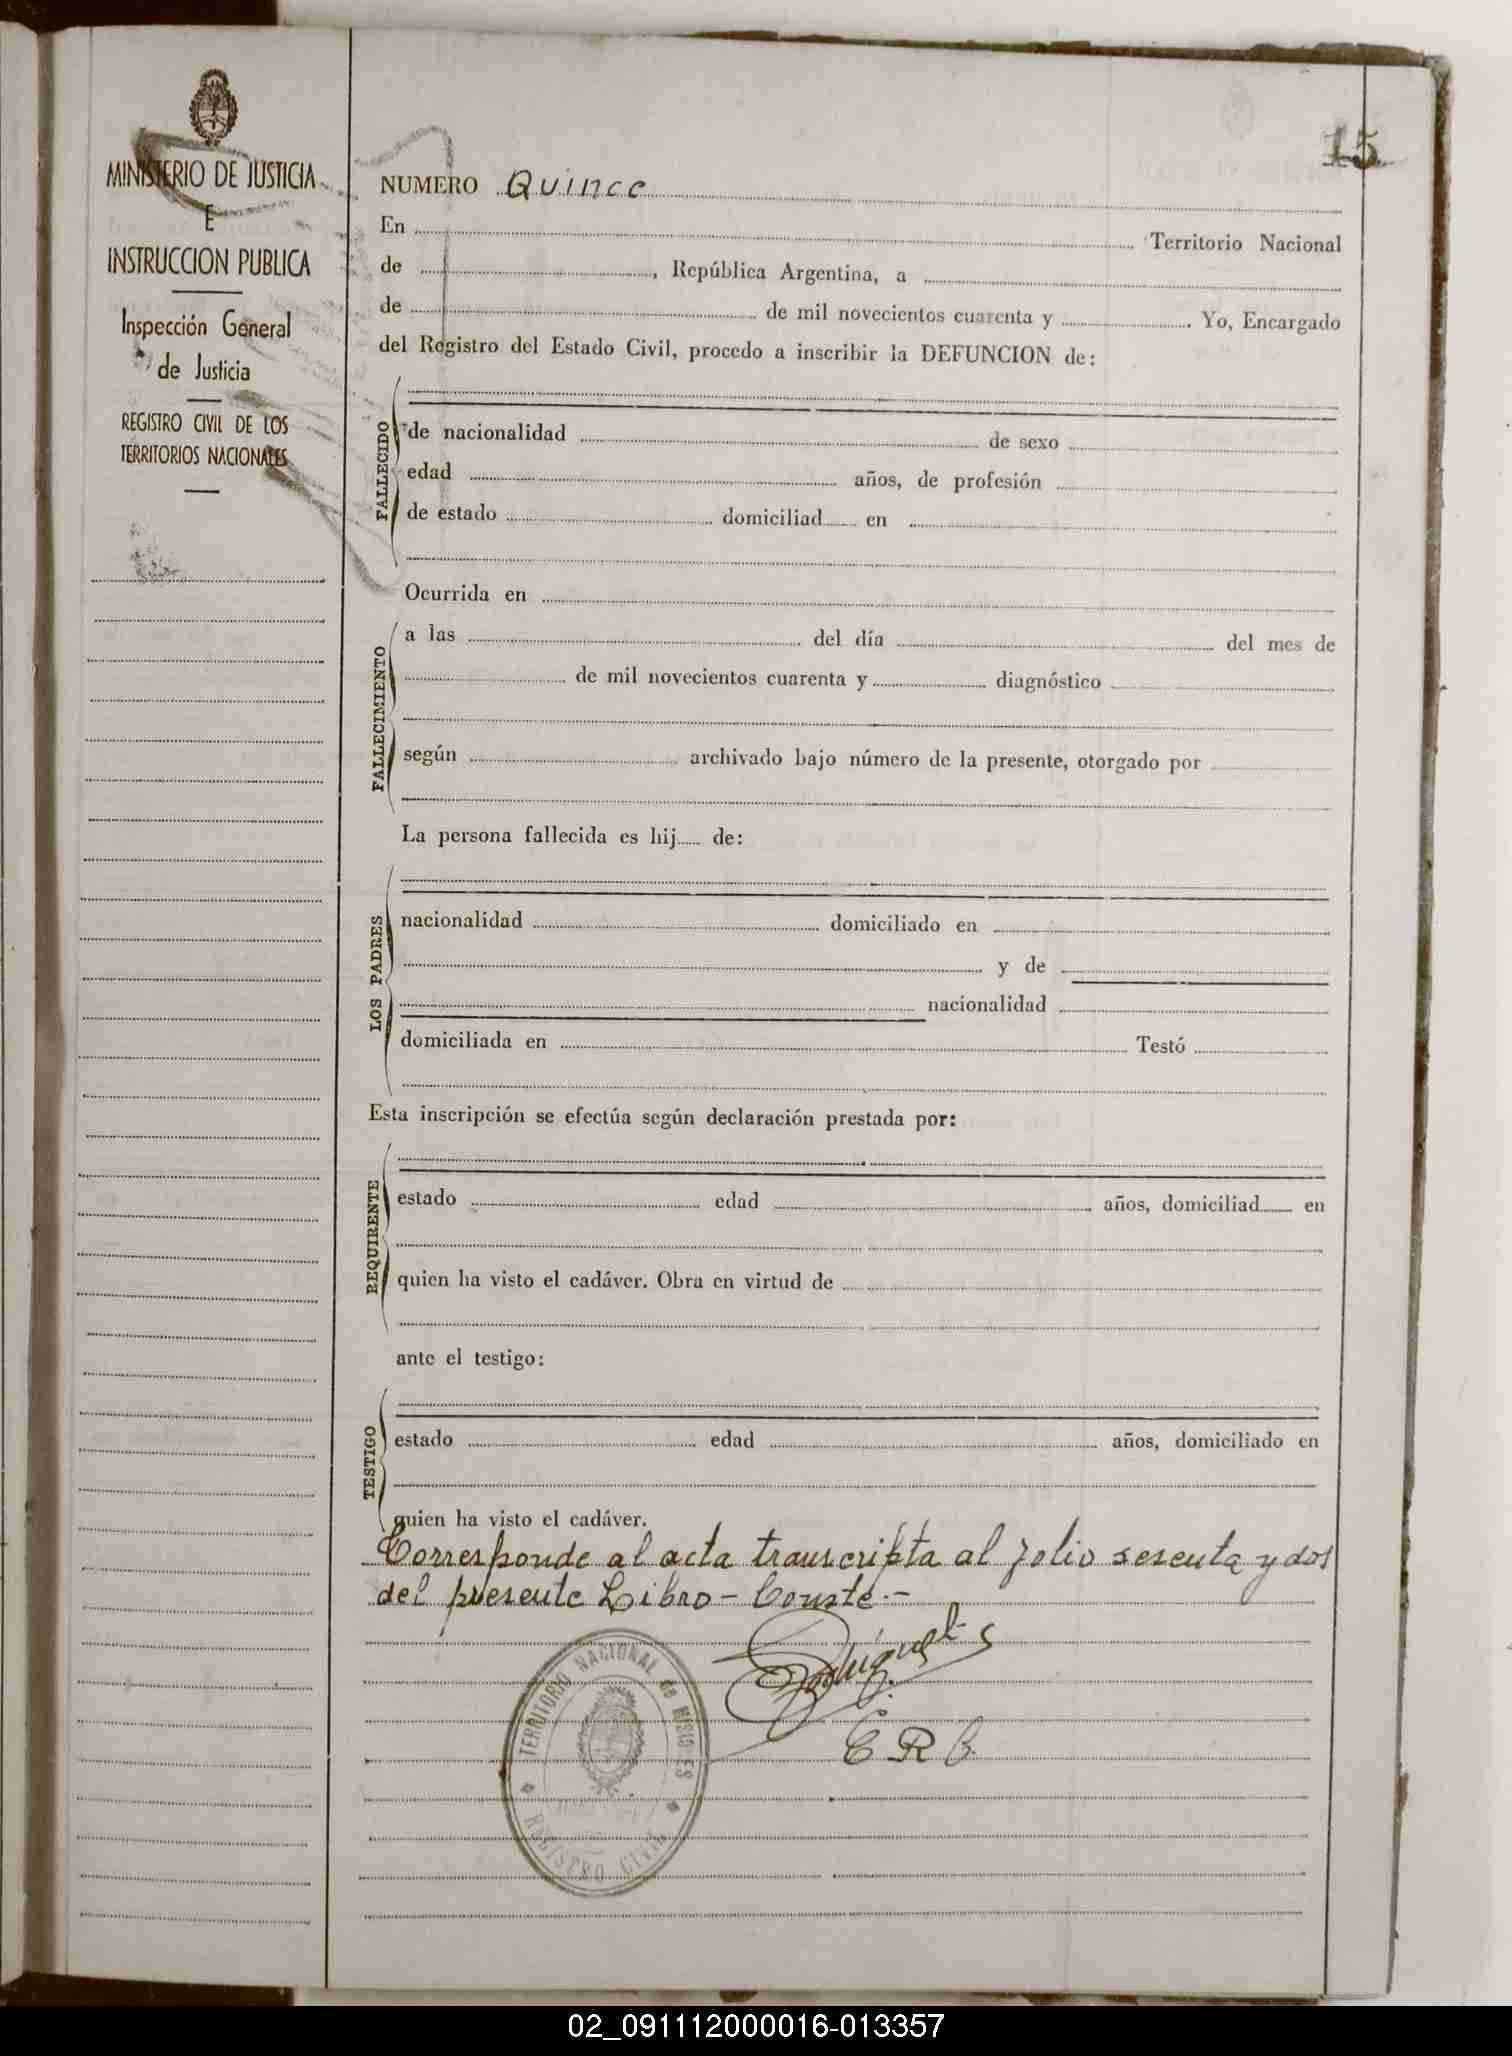 15
MINISTERIO DE JUSTICIA
E
INSTRUCCION PUBLICA
Inspección General
de Justicia
REGISTRO CIVIL DE LOS
TERRITORIOS NACIONALES
NUMERO Quince
En Territorio Nacional
de , República Argentina, a
de de mil novecientos cuarenta y . Yo, Encargado
del Registro del Estado Civil, procedo a inscribir la DEFUNCION de:
FALLECIDO
de nacionalidad de sexo
edad años, de profesión
de estado domiciliad en
Ocurrida en
FALLECIMIENTO
a las del día del mes de
de mil novecientos cuarenta y diagnóstico
según archivado bajo número de la presente, otorgado por
La persona fallecida es hij de:
LOS PADRES
nacionalidad domiciliado en
y de
nacionalidad
domiciliada en Testó
Esta inscripción se efectúa según declaración prestada por:
REQUIRENTE
estado edad años, domiciliad en
quien ha visto el cadáver. Obra en virtud de
ante el testigo:
TESTIGO
estado edad años, domiciliado en
quien ha visto el cadáver.
Corresponde al acta transcripta al folio sesenta y dos
del presente Libro - Conste.-
E R C.
TERRITORIO NACIONAL de MISIONES
REGISTRO CIVIL
02_091112000016-013357